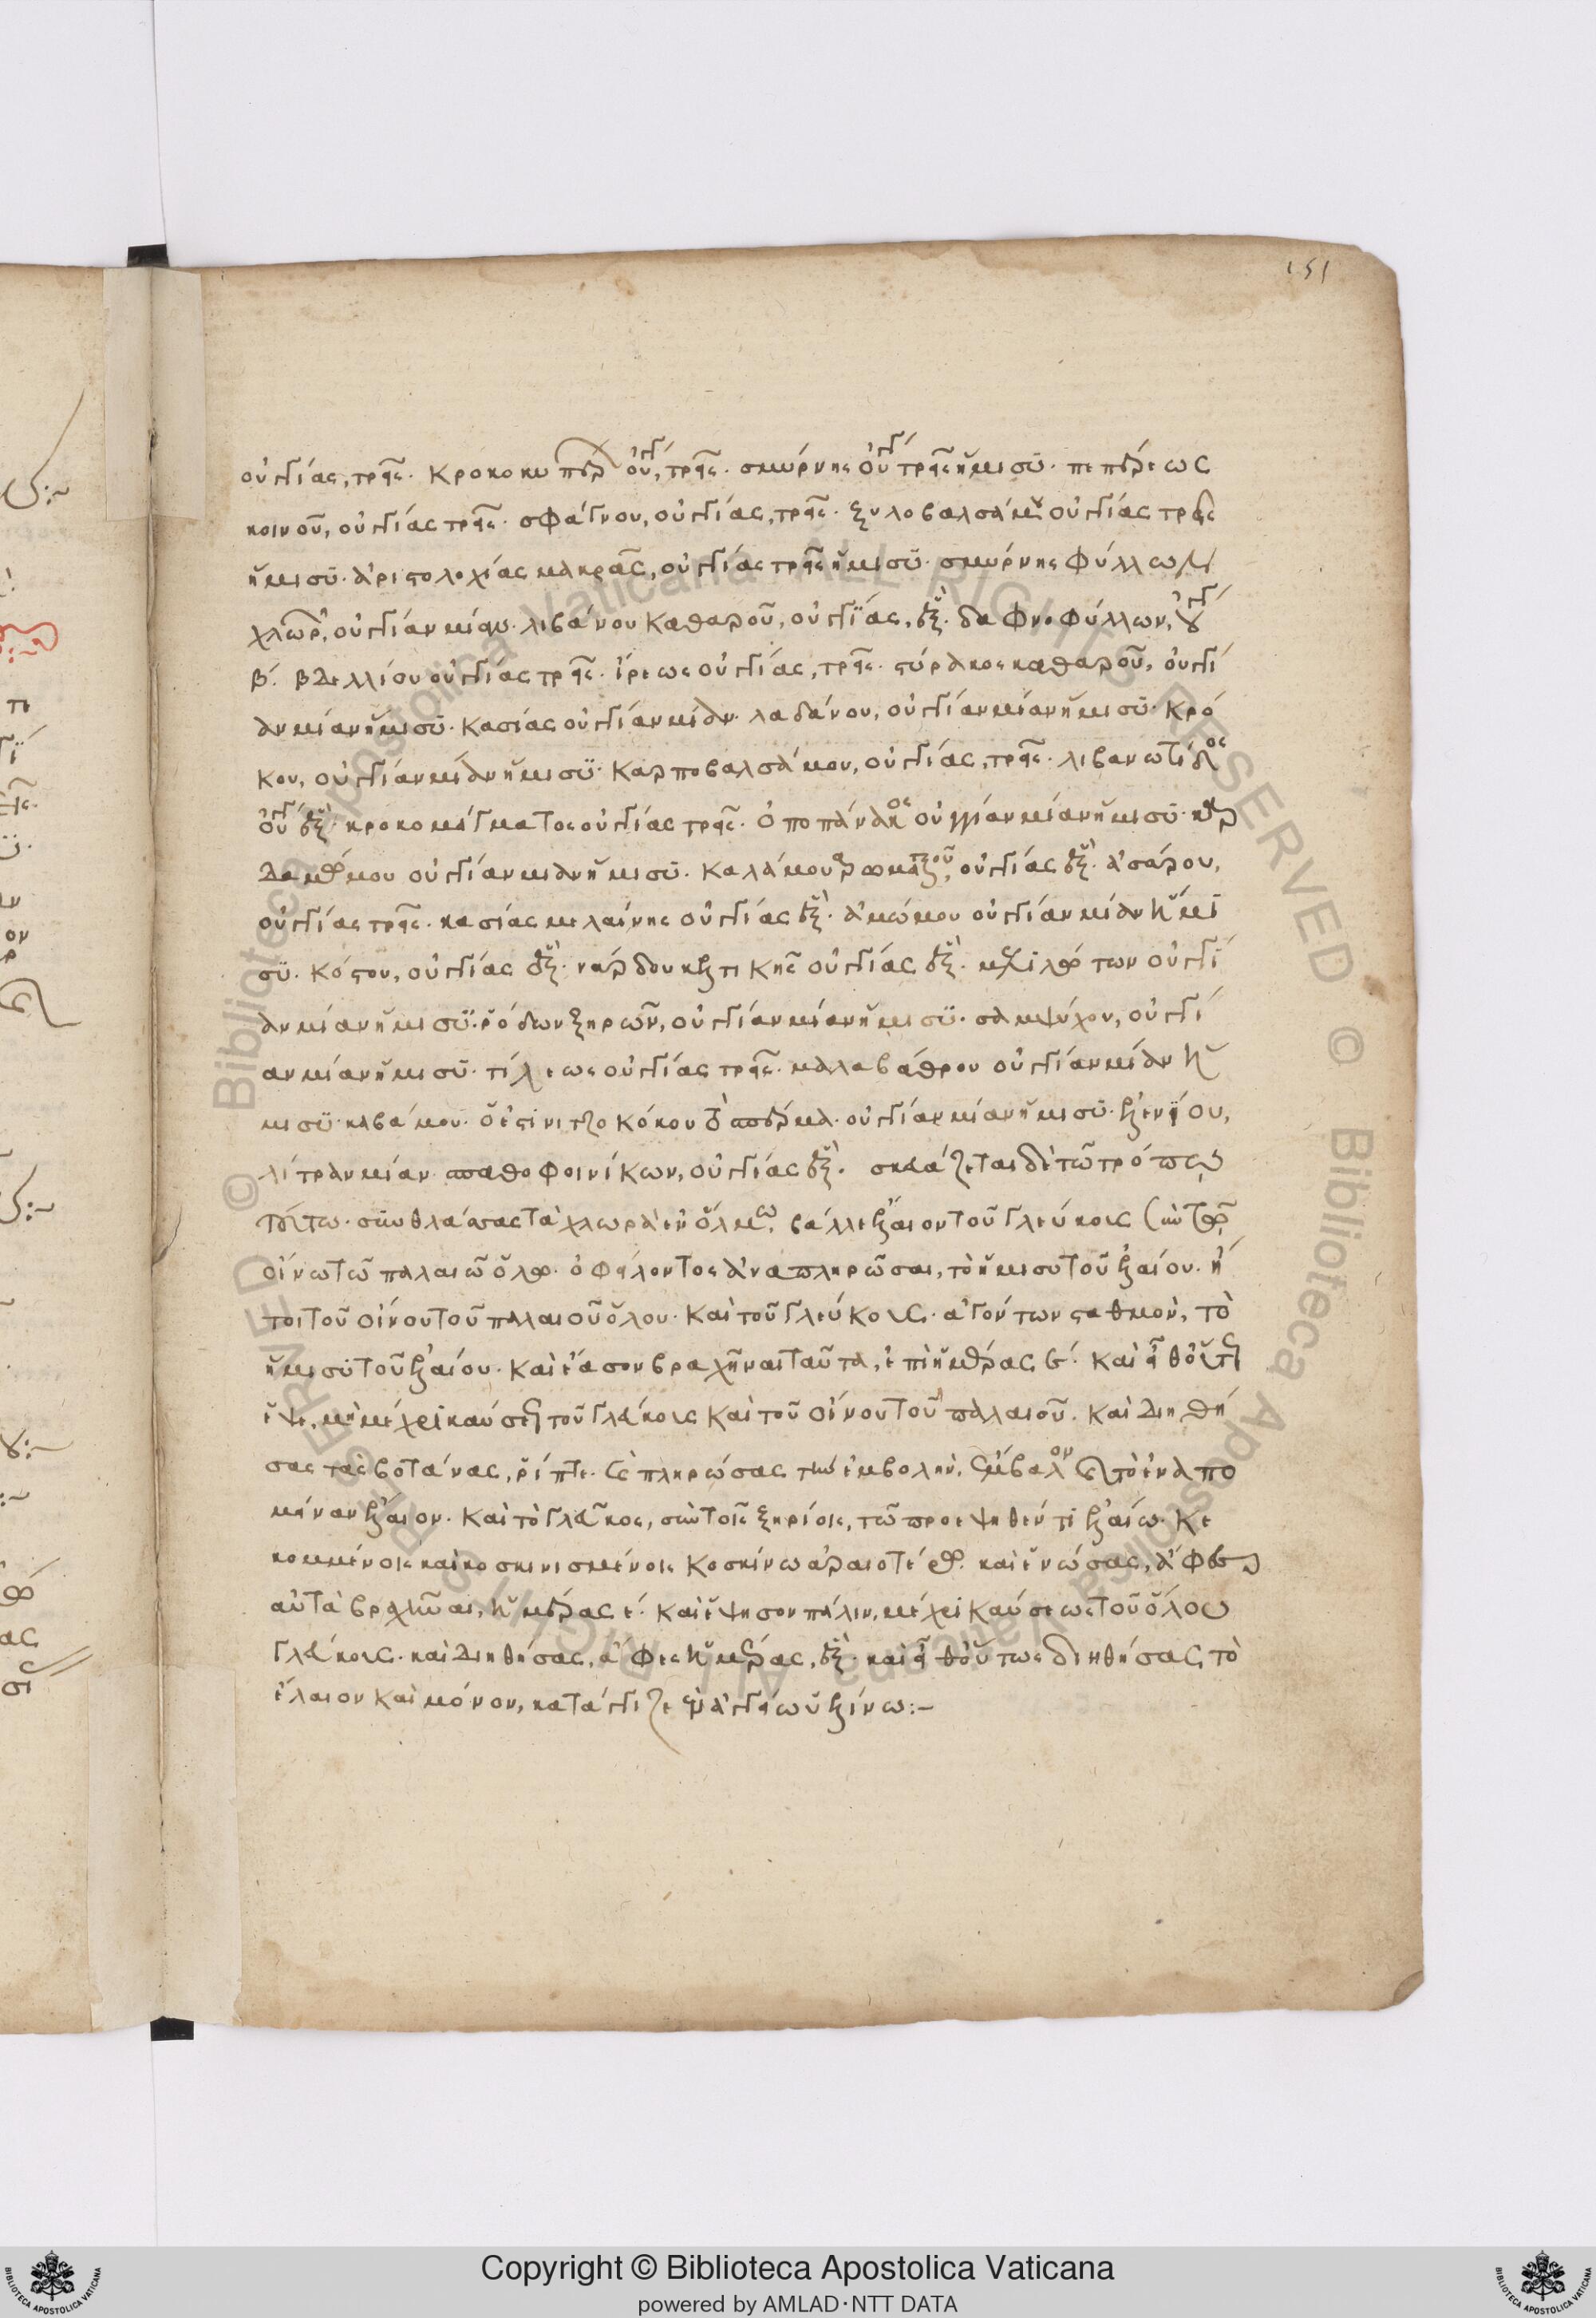 151
οὐγγίας, τρεῖς. κροκοκυπερ οὐγγί, τρεῖς. σμύρνης οὐγγί τρεῖς ἥμισυ. πεπέρεως
κοινοῦ, οὐγγίας τρεῖς. σφάγνου, οὐγγίας, τρεῖς. ξυλοβαλσάμου οὐγγίας τρεῖς
ἥμισυ. ἀριστολοχίας μακρᾶς, οὐγγίας τρεῖς ἥμισυ. σμύρνης φύλλων
χλωρ, οὐγγίαν μίαν. λιβάνου καθαροῦ, οὐγγίας, ἕξ. δαφνοφύλλων, οὐγγί
β. βδελλίου οὐγγίας τρεῖς. ἴρεως οὐγγίας, τρεῖς. στύρακος καθαροῦ, οὐγγί
αν μίαν ἥμισυ. κασίας οὐγγίαν μίαν. λαδάνου, οὐγγίαν μίαν ἥμισυ. κρό
κου, οὐγγίαν μίαν ἥμισυ. καρποβαλσάμου, οὐγγίας, τρεῖς. λιβανωτίδος
οὐγγί ἕξ. κροκομάγματος οὐγγίας τρεῖς. ὀποπάνακος οὐγγίαν μίαν ἥμισυ. καρ
δαμώμου οὐγγίαν μιαν ἥμισυ. καλάμου ἀρωματικοῦ, οὐγγίας ἕξ. ἀσάρου,
οὐγγίας τρεῖς. κασίας μελαίνης οὐγγίας ἕξ. ἀμώμου οὐγγίαν μίαν ἥμι
συ. κόστου, οὐγγίας ἕξ. νάρδου κελτικῆς οὐγγίας ἕξ. μελιλώτων οὐγγί
αν μίαν ἥμισυ. ῥόδων ξηρῶν, οὐγγίαν μίαν ἥμισυ. σαμψύχου, οὐγγί
αν μίαν ἥμισυ. τίλεως οὐγγίας τρεῖς. μαλαβάθρου οὐγγίαν μίαν ἥ
μισυ. καβάμου. ὅ ἐστι νιτζοκόκου τὸ σπέρμα. οὐγγίαν μίαν ἥμισυ. ἑλενίου,
λίτραν μίαν. σπαθοφοινίκων, οὐγγίας ἕξ. σκευάζεται δὲ τῶ τρόπω
τούτω. συνθλάσας τὰ χλωρὰ ἐν ὅλμω, βάλλε ἔλαιον τοῦ γλεύκους σὺν τῶ
οἴνω τῶ παλαιῶ ὅλω. ὀφείλοντος ἀναπληρῶσαι, τὸ ἥμισυ τοῦ ἐλαίου. ἤ
τοι τοῦ οἴνου τοῦ παλαιοῦ ὅλου. καὶ τοῦ γλεύκους. ἀγόντων σταθμὸν, τὸ
ἥμισυ τοῦ ἐλαίου. καὶ ἔασον βραχῆναι ταῦτα, ἐπὶ ἡμέρας ς. καὶ εἶθ' οὕτως
ἕψε, μὴ μέχρι καύσεως τοῦ γλεύκους καὶ τοῦ οἴνου τοῦ παλαιοῦ. καὶ διηθή
σας τὰς βοτάνας, ῥίπτε. καὶ πληρώσας τὴν ἐμβολὴν, ἔμβαλον εἰς τὸ ἐναπο
μεῖναν ἔλαιον. καὶ τὸ γλεῦκος, σὺν τοῖς ξηρίοις, τῶ προεψηθέντι ἐλαίω. κε
κομμένοις καὶ κοσκινισμένοις κοσκίνω ἀραιοτέρω. καὶ ἑνώσας, ἄφες
αὐτὰ βραχῆναι, ἡμέρας ε. καὶ ἕψησον πάλιν, μέχρι καύσεως τοῦ ὅλου
γλεύκους. καὶ διηθήσας, ἄφες ἡμέρας, ἕξ. καὶ εἶθ' οὕτως διηθήσας τὸ
ἔλαιον καὶ μόνον, κατάγγιζε ἐν ἀγγείω ὑελίνω:–
Copyright © Biblioteca Apostolica Vaticana
powered by AMLAD·NTT DATA